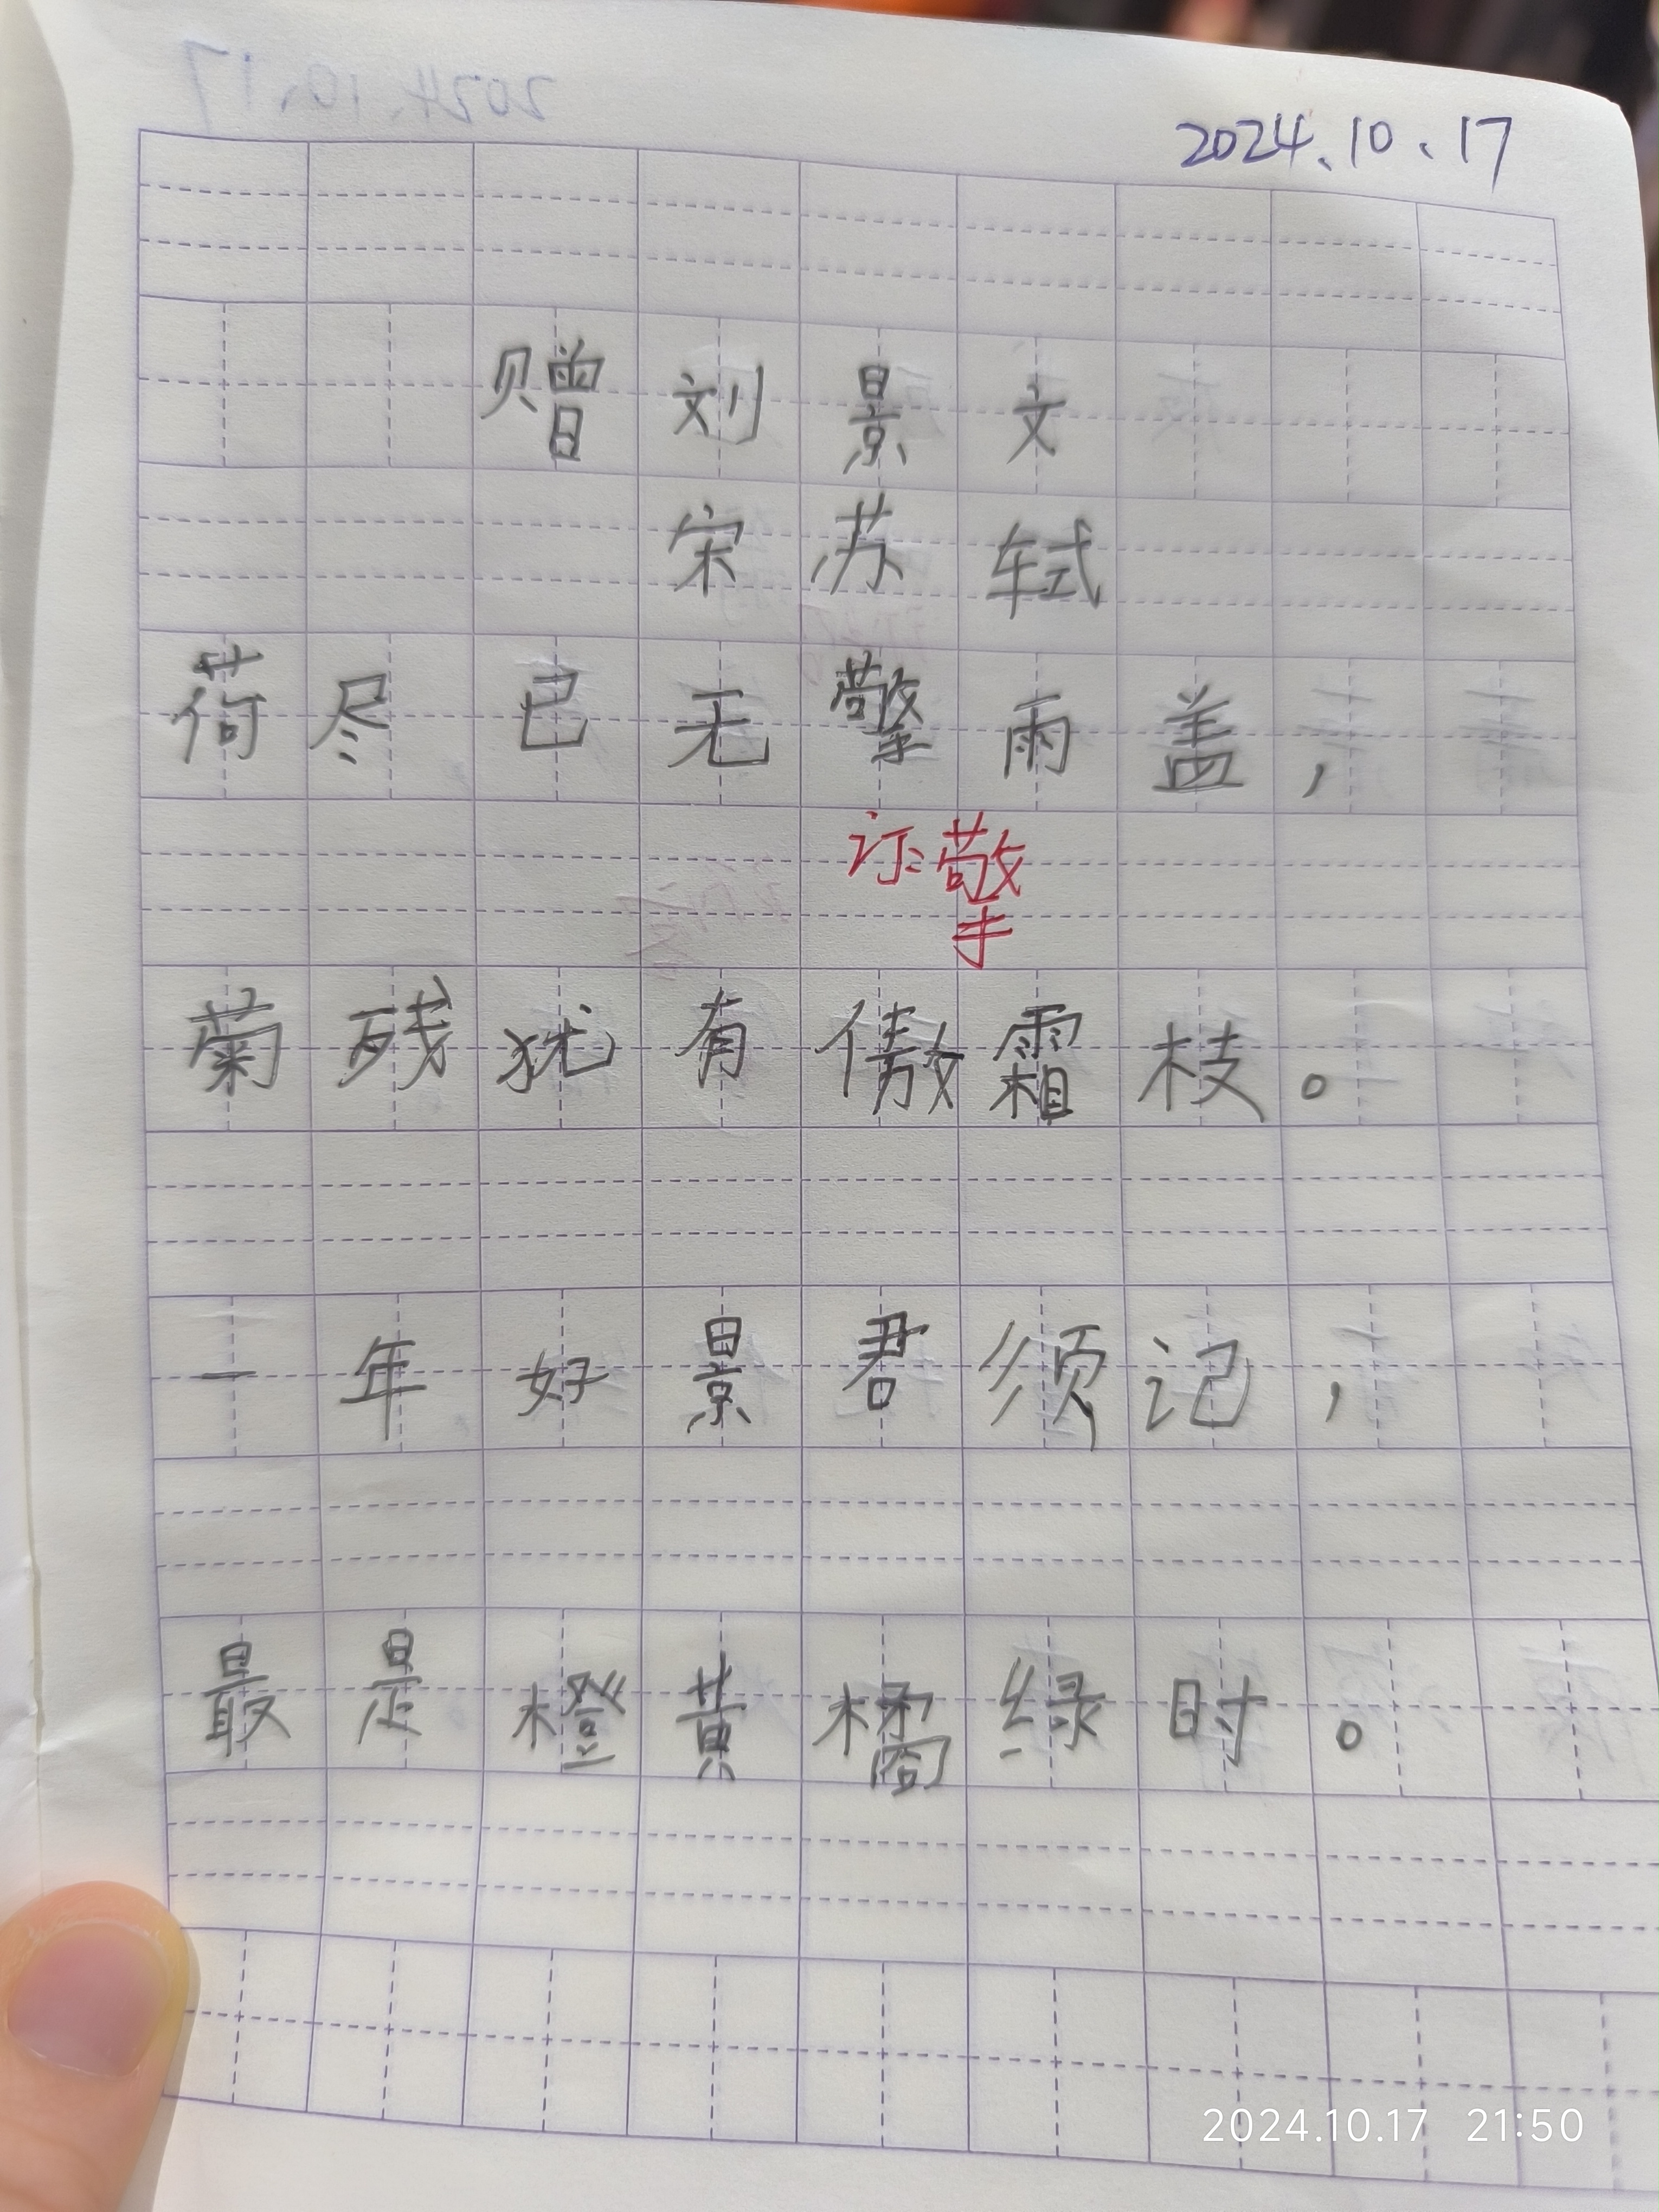 2024.10.17
赠刘景文
宋苏轼
荷尽已无擎雨盖，
订:擎
菊残犹有傲霜枝。
一年好景君须记，
最是橙黄橘绿时。
2024.10.17 21:50